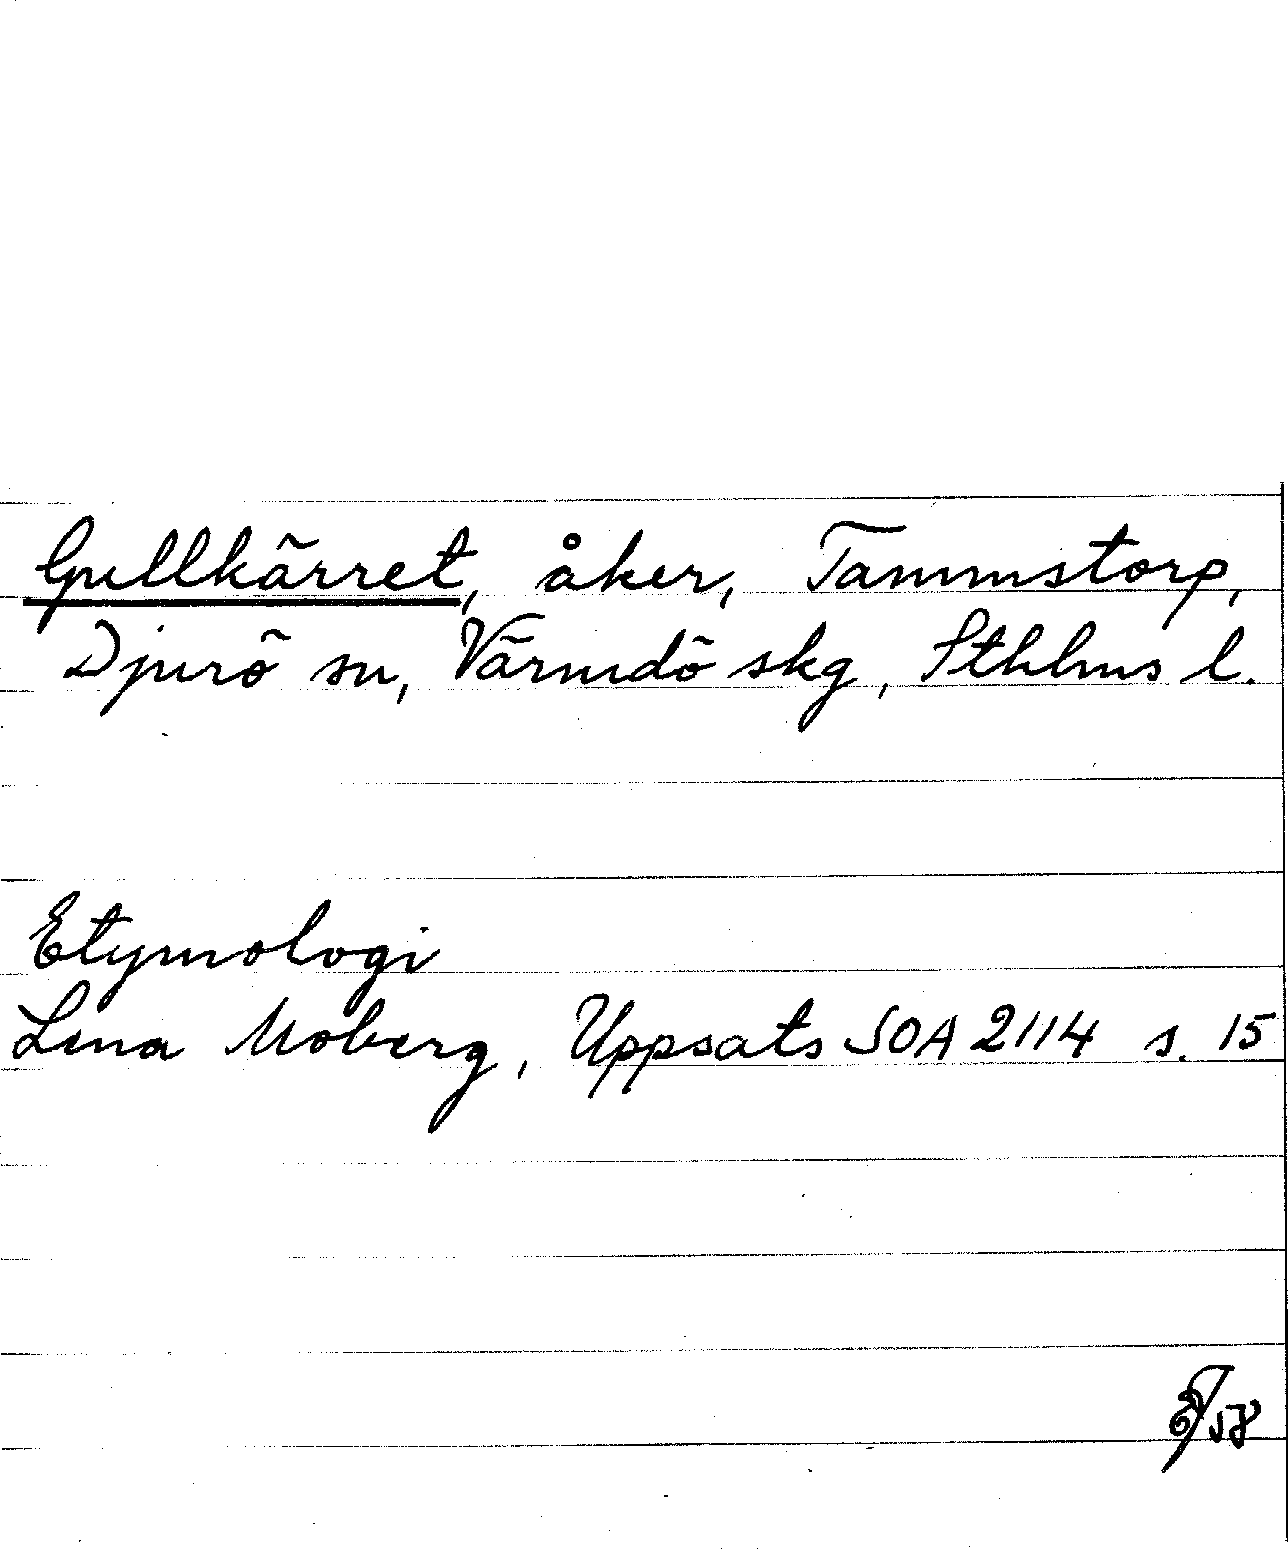 Gullkärret, åker, Tammstorp,
Djurö sn, Värmdö skg, Sthlms l.
Etymologi
Lena Moberg, Uppsats SOA 2114 s. 15